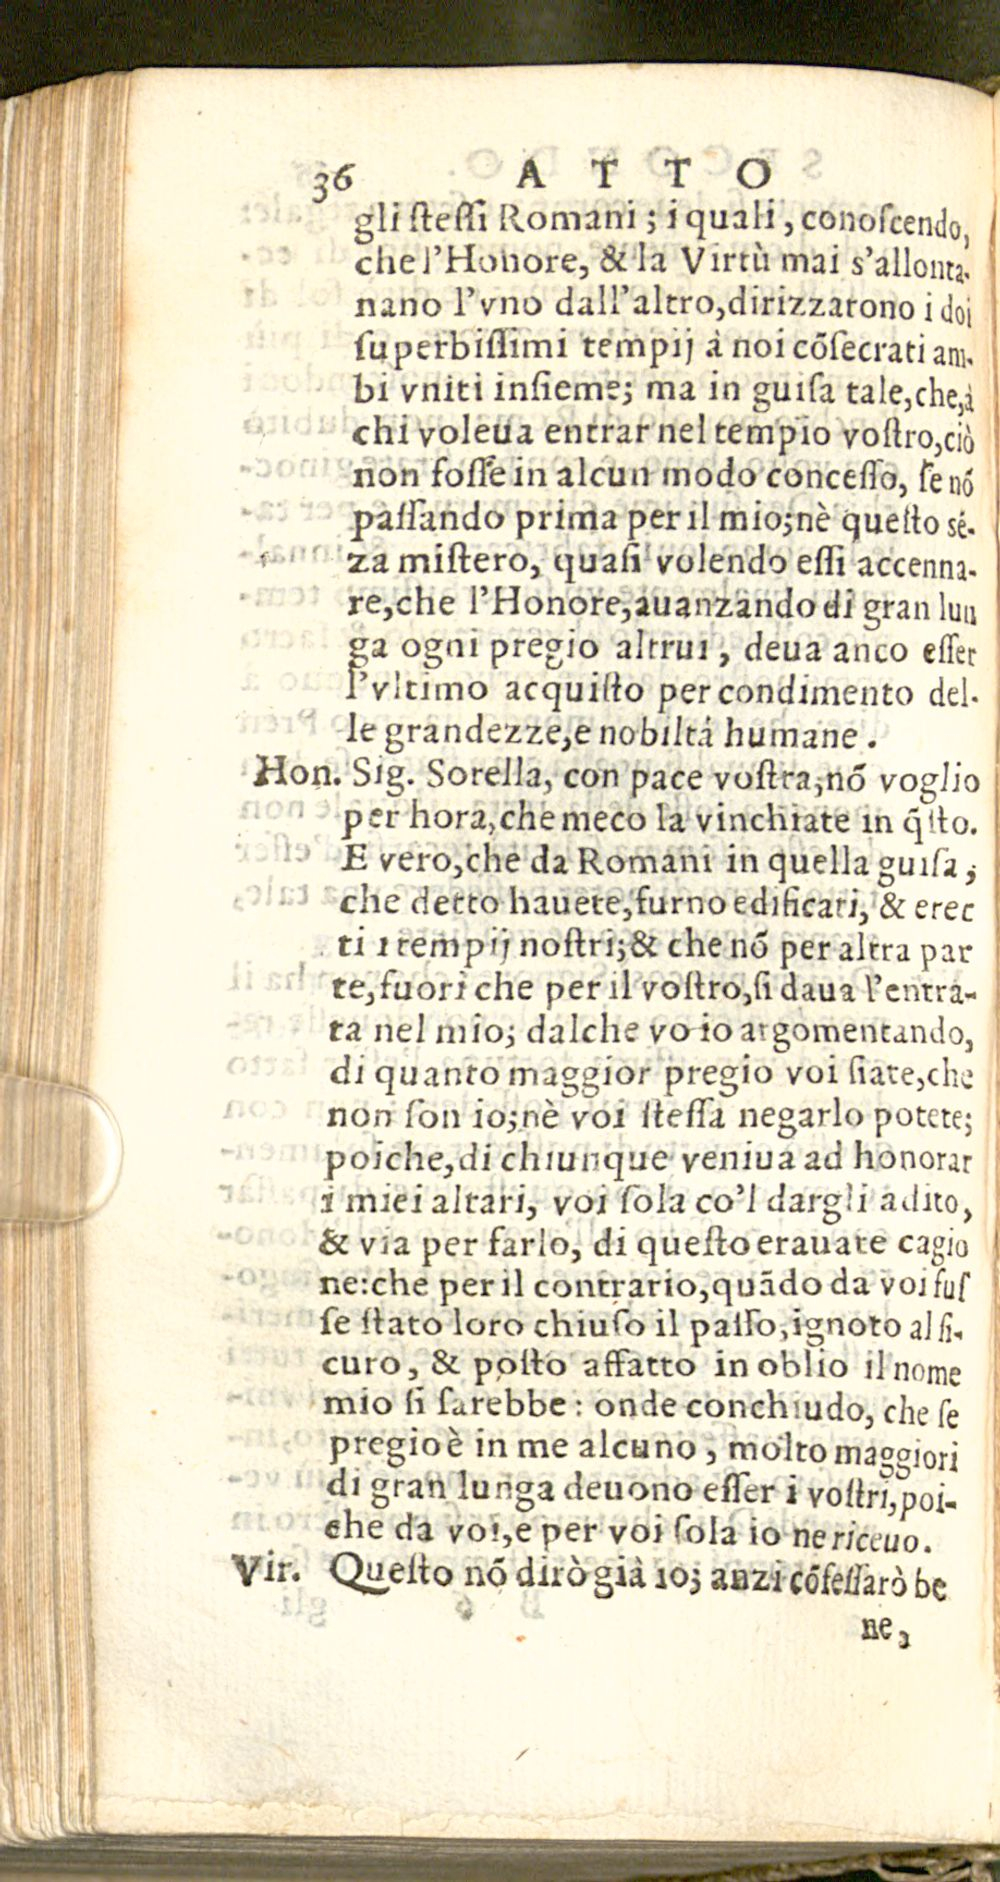 36 ATTO
gli ſteſſi Romani ; i quali , conoſcendo,
che l'Honore, & la Virtù mai s'allonta-
nano l'vno dall'altro,dirizzarono i doi
ſuperbiſſimi tempij à noi cõſecrati am-
bi vniti inſieme; ma in guiſa tale,che,à
chi voleua entrar nel tempio voſtro,ciò
non foſſe in alcun modo conceſſo, ſe nõ
paſſando prima per il mio;nè queſto sẽ-
za miſtero, quaſi volendo eſſi accenna-
re,che l'Honore,auanzando di gran lun
ga ogni pregio altrui , deua anco eſſer
l'vltimo acquiſto per condimento del-
le grandezze,e nobiltà humane .
Hon. Sig. Sorella, con pace voſtra,nõ voglio
per hora,che meco la vinchiate in q̃ſto.
E vero,che da Romani in quella guiſa ,
che detto hauete,furno edificati, & erec
ti i tempij noſtri;& che nõ per altra par
te,fuori che per il voſtro,ſi daua l'entra-
ta nel mio; dalche vo io argomentando,
di quanto maggior pregio voi ſiate,che
non ſon io;nè voi ſteſſa negarlo potete;
poiche,di chiunque veniua ad honorar
i miei altari, voi ſola co'l dargli adito,
& via per farlo, di queſto erauate cagio
ne:che per il contrario,quãdo da voi fuſ
ſe ſtato loro chiuſo il paſſo,ignoto al ſi-
curo, & poſto affatto in oblio il nome
mio ſi ſarebbe : onde conchiudo, che ſe
pregio è in me alcuno , molto maggiori
di gran lunga deuono eſſer i voſtri,poi-
che da voi,e per voi ſola io ne riceuo.
Vir. Queſto nõ dirò già io; anzi cõfeſſarò be
ne,